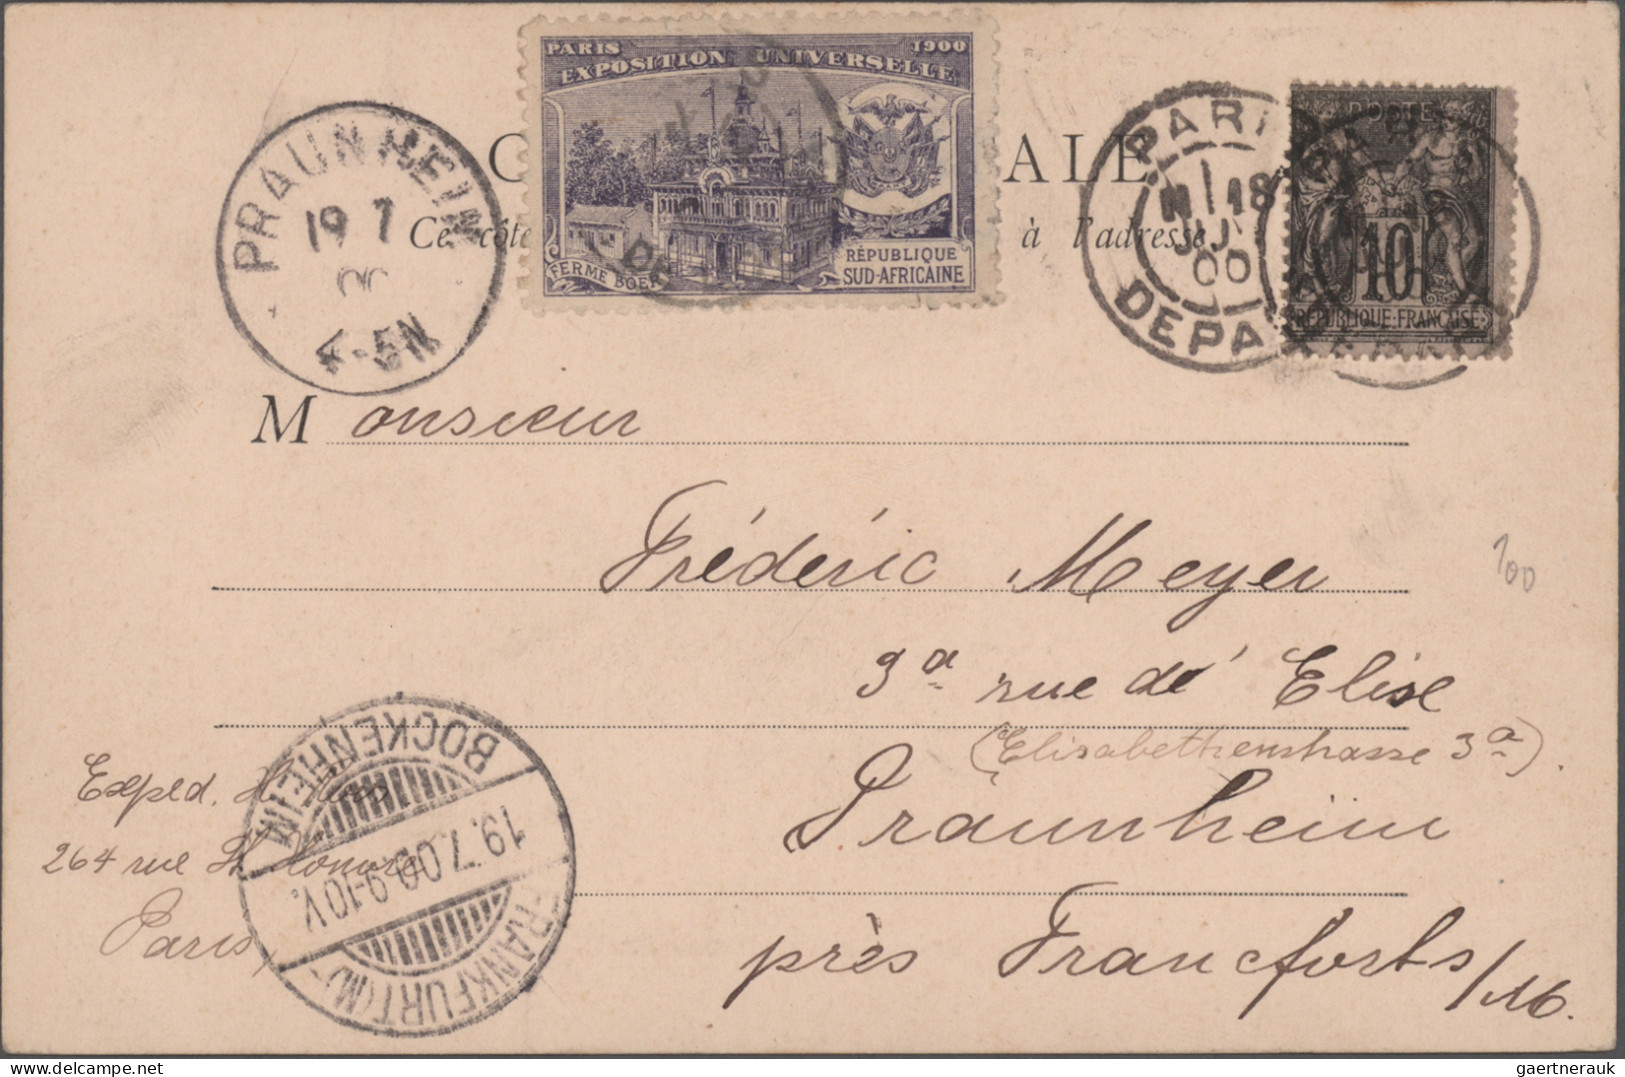 PARIS 1900
EXPOSITION UNIVERSELLE
FERME BOER
RÉPUBLIQUE
SUD-AFRICAINE
DE
PRAUNHEIM
19 7
00
5-6N
C ALE
Ce côté à l'adresse
PARI
18
JUIL
00
DEPA
POSTE
10
RÉPUBLIQUE·FRANÇAISE
Monsieur
Frédéric Meyer
3a rue de Elise
(Elisabethenstrasse 3a).
Praunheim
près Francforts/M.
100
Exped. H.
264 rue St Honoré
Paris
BOCKENHEIM
19.7.00.9-10V.
FRANKFURT (M)
gaertnerauk